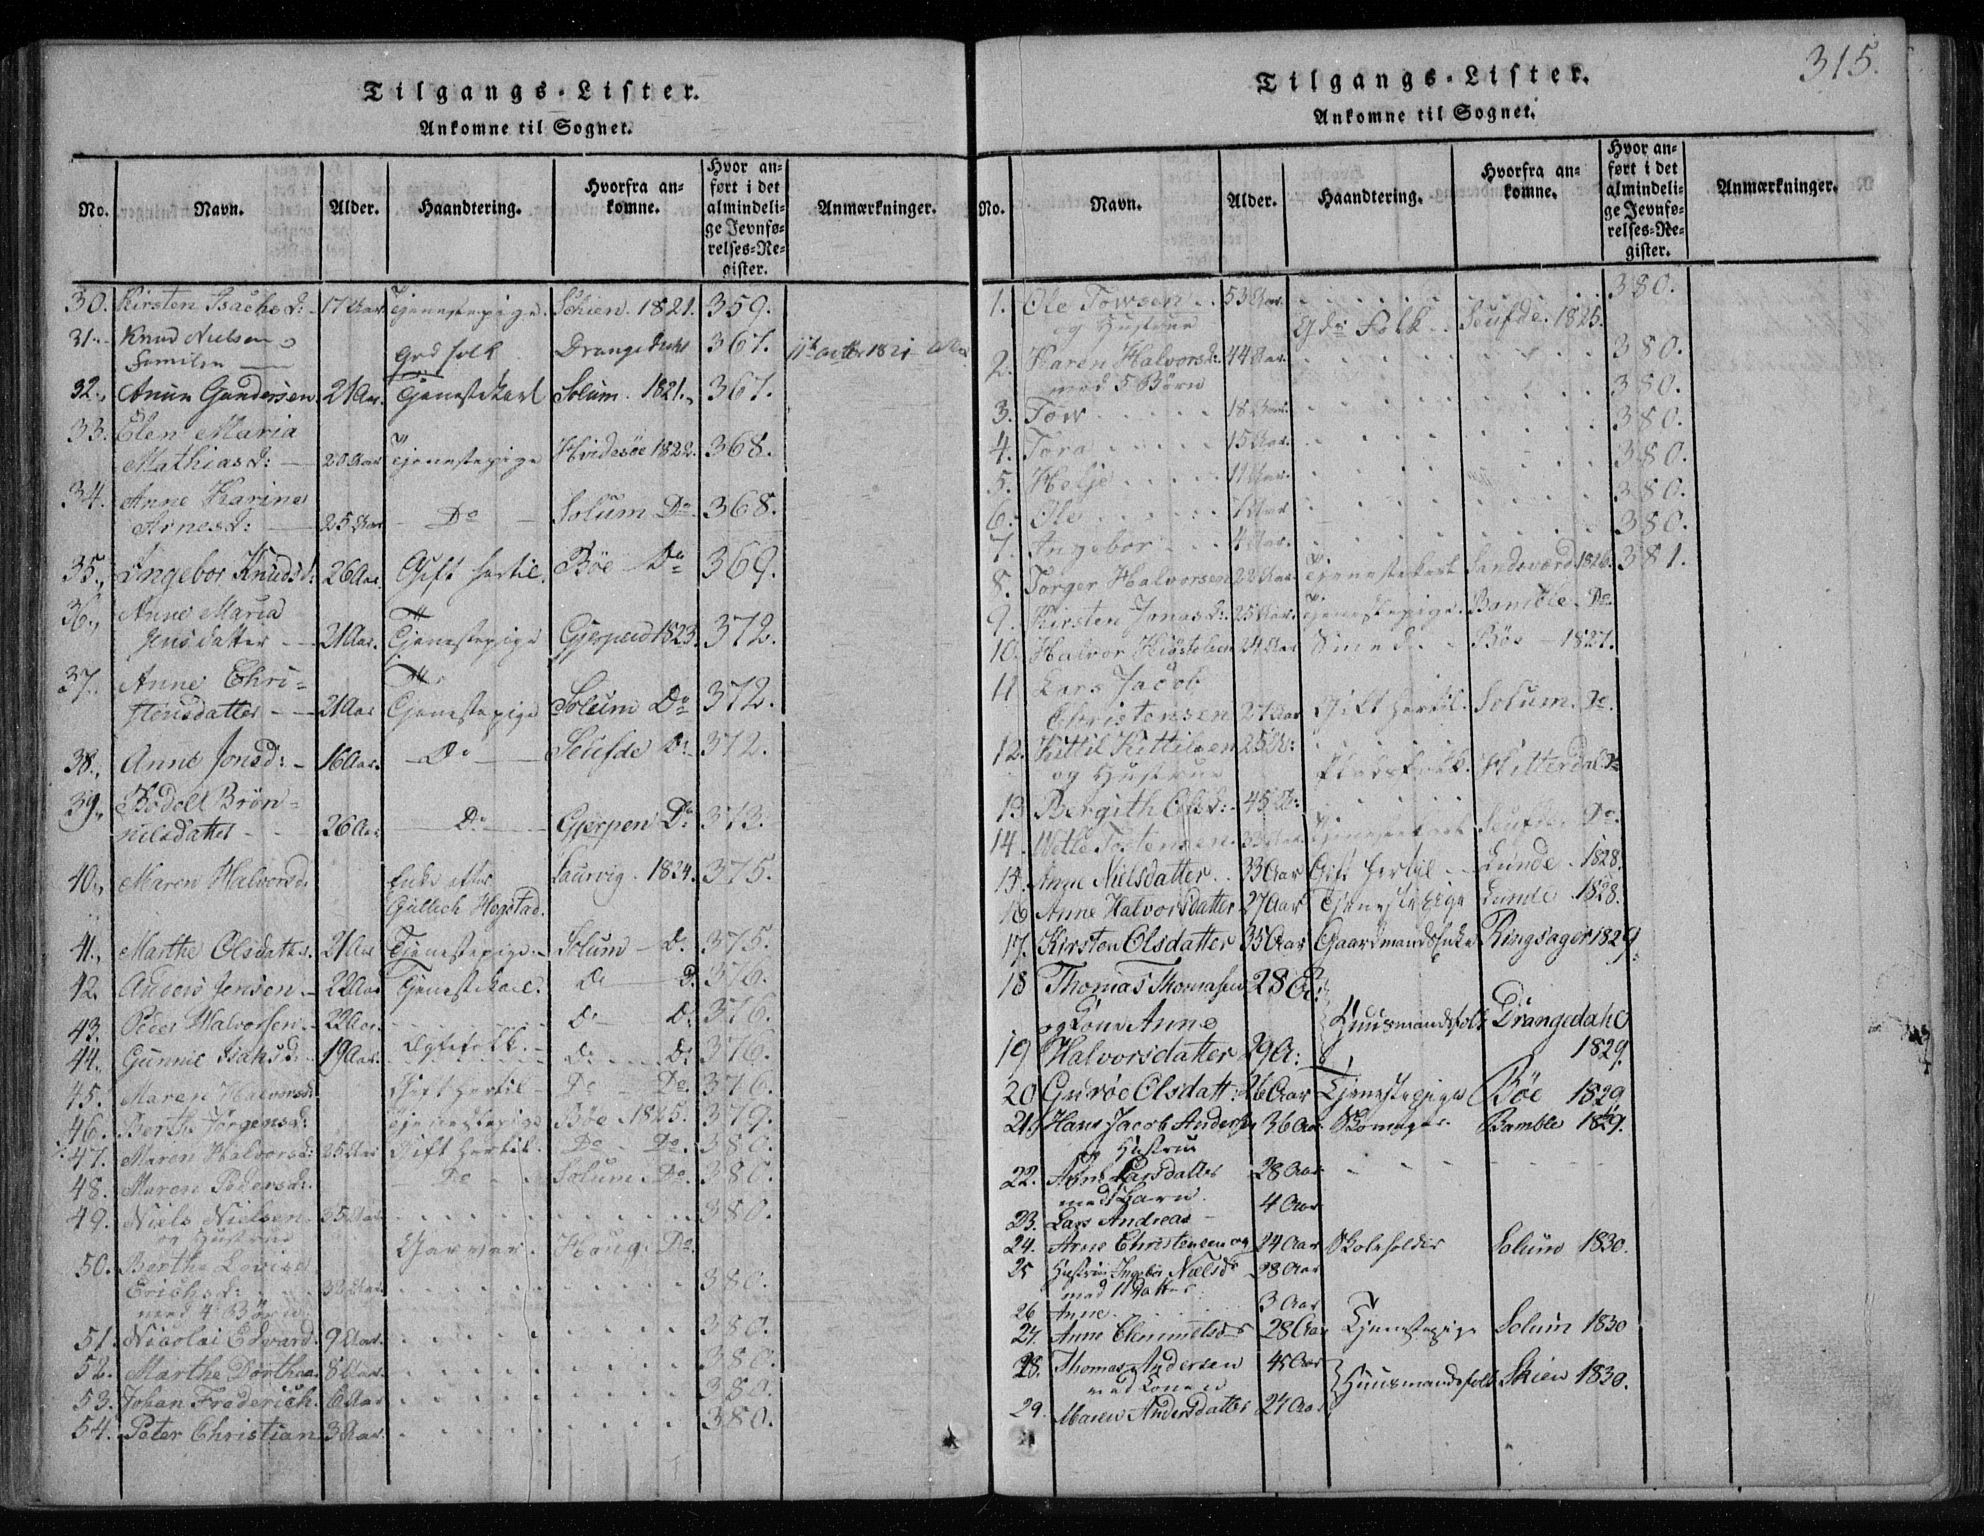 Tilgangs-Lister.
Ankomne til Sognet.
No. Navn. Alder. Haandtering. Hvorfra an-komne. Hvor an-ført i det almindeli-ge Jevnfø-relses-Re-gister. Anmærkninger.
30. Kirsten Isachsd: 17 Aar Tjenestepige. Schien. 1821. 359.
31. Knud Nielsen 
Familie Grd folk Drangedahl 367.
32. Gundersen 21 Aar. Tjenestekarl Solum. 1821. 367.
33. Elen Maria
Mathiasd: 20 Aar Tjenestepige Hvidesøe 1822. 368.
34. Anne Karine
Arnesd: 25 Aar Do Solum Do 368.
35. Ingebor Knudsd: 26 Aar. Gift hertil. Bøe Do 369.
36. Anne Maria
Jensdatter 21 Aar. Tjenestepige Gjerpen 1823. 372.
37. Anne Chri-
stensdatter 21 Aar Tjenestepige Solum Do 372.
38. Anne Jonsd: 16 Aar. Do Seufde Do 372.
39. Bodell Brøn-
nilsdatter 26 Aar Do Gjerpen Do 373.
40. Maren Halvorsd. Enke efter Laurvig. 1824. 375.
Gullich Hogstad.
41. Marthe Olsdatter. 21 Aar Tjenestepige. Solum Do. 375.
42. Anders Jensen 22 Aar Tjenestekarl. Do Do. 376.
43. Peder Halvorsen 22 Aar. Do Do 376.
44. Gunnil Isaksd: 19 Aar. Egtefolk. Do Do 376.
45. Maren Halvorsd: Gift hertil Do Do. 376.
46. Berthe Jørgensd: Tjenestepige Bøe. 1825. 379.
47. Maren Halvorsd: 25 Aar Gift hertil. Do Do. 380.
48. Maren Pedersd: Do Solum. Do. 380.
49. Niels Nielsen 35 Aar 380.
og Hustrue Garver. Haug. Do.
50. Berthe Lovise
Erichsd: 32 Aar. 380.
med 4 Børn
51. Nicolai Edvard. 9 Aar. 380.
52. Marthe Dorthea. 8 Aar. 380.
53. Johan Fraderich. 6 Aar 380.
54. Peter Christian 3 Aar. 380.
315.
Tilgangs-Lister.
Ankomne til Sognet.
No. Navn. Alder. Haandtering. Hvorfra an-komne. Hvor an-ført i det almindeli-ge Jevnfø-relses-Re-gister. Anmærkninger.
1. Ole Towsen 53 Aar. 380.
og Hustrue Gds Folk Seufde. 1825.
2. Karen Halvorsd: 44 Aar. 380.
med 5 Børn
3. Tow 18 Aar. 380.
4. Tora 15 Aar. 380.
5. Helje 11 Aar. 380.
6. Ole 7 Aar 380.
7. Ingebor 4 Aar. 380.
8. Torger Halvorsen 22 Aar. Tjenestekarl Sandsværd 1826. 381.
9. Kirsten Jonasd: 25 Aar. Tjenestepige. Bamble. Do.
10. Halvor 24 Aar Smed. Bøe 1827.
11 Lars Jacob
Christensen 27 Aar Gift hertil. Solum. Do.
12. Kittil Kittilsen 25 Ar:
og Hustrue Pladsfolk. Hitterdal Do
13 Bergith Olsd: 45 Ar:
14. Wetle Tostensen 33 Aar Tjenestekarl Seufde. Do.
15. Anne Nielsdatter 33 Aar Gift hertil Lunde 1828.
16 Anne Halvorsdatter 27 Aar Tjenestepige Lunde 1828.
17. Kirsten Olsdatter 35 Aar Gaardmands Enke Ringsager 1829.
18 Thomas Thomasen 28 A:
og Kone Anne Huusmandsfolk Drangedahl
19 Halvorsdatter 29 A: 1829.
20 Guroe Olsdatt: 26 Aar Tjenestepige Bøe 1829
21. Hans Jacob Anders 36 Aar. Skomager. Bamble 1829.
og Hustrue
22. Larsdatter 28 Aar
med Barn.
23. Lars Andreas 4 Aar
24. Arne Christensen og 24 Aar Skoleholder Solum 1830.
25 Hustrue Ingebor Nielsd 28 Aar
med 1 Datter
26 Anne 3 Aar
27. Anne 28 Aar Tjenestepige Solum 1830
28. Thomas Andersen 45 Aar
med Konen Huusmandsfolk Skien 1830.
29. Maren Andersdatter 24 Aar